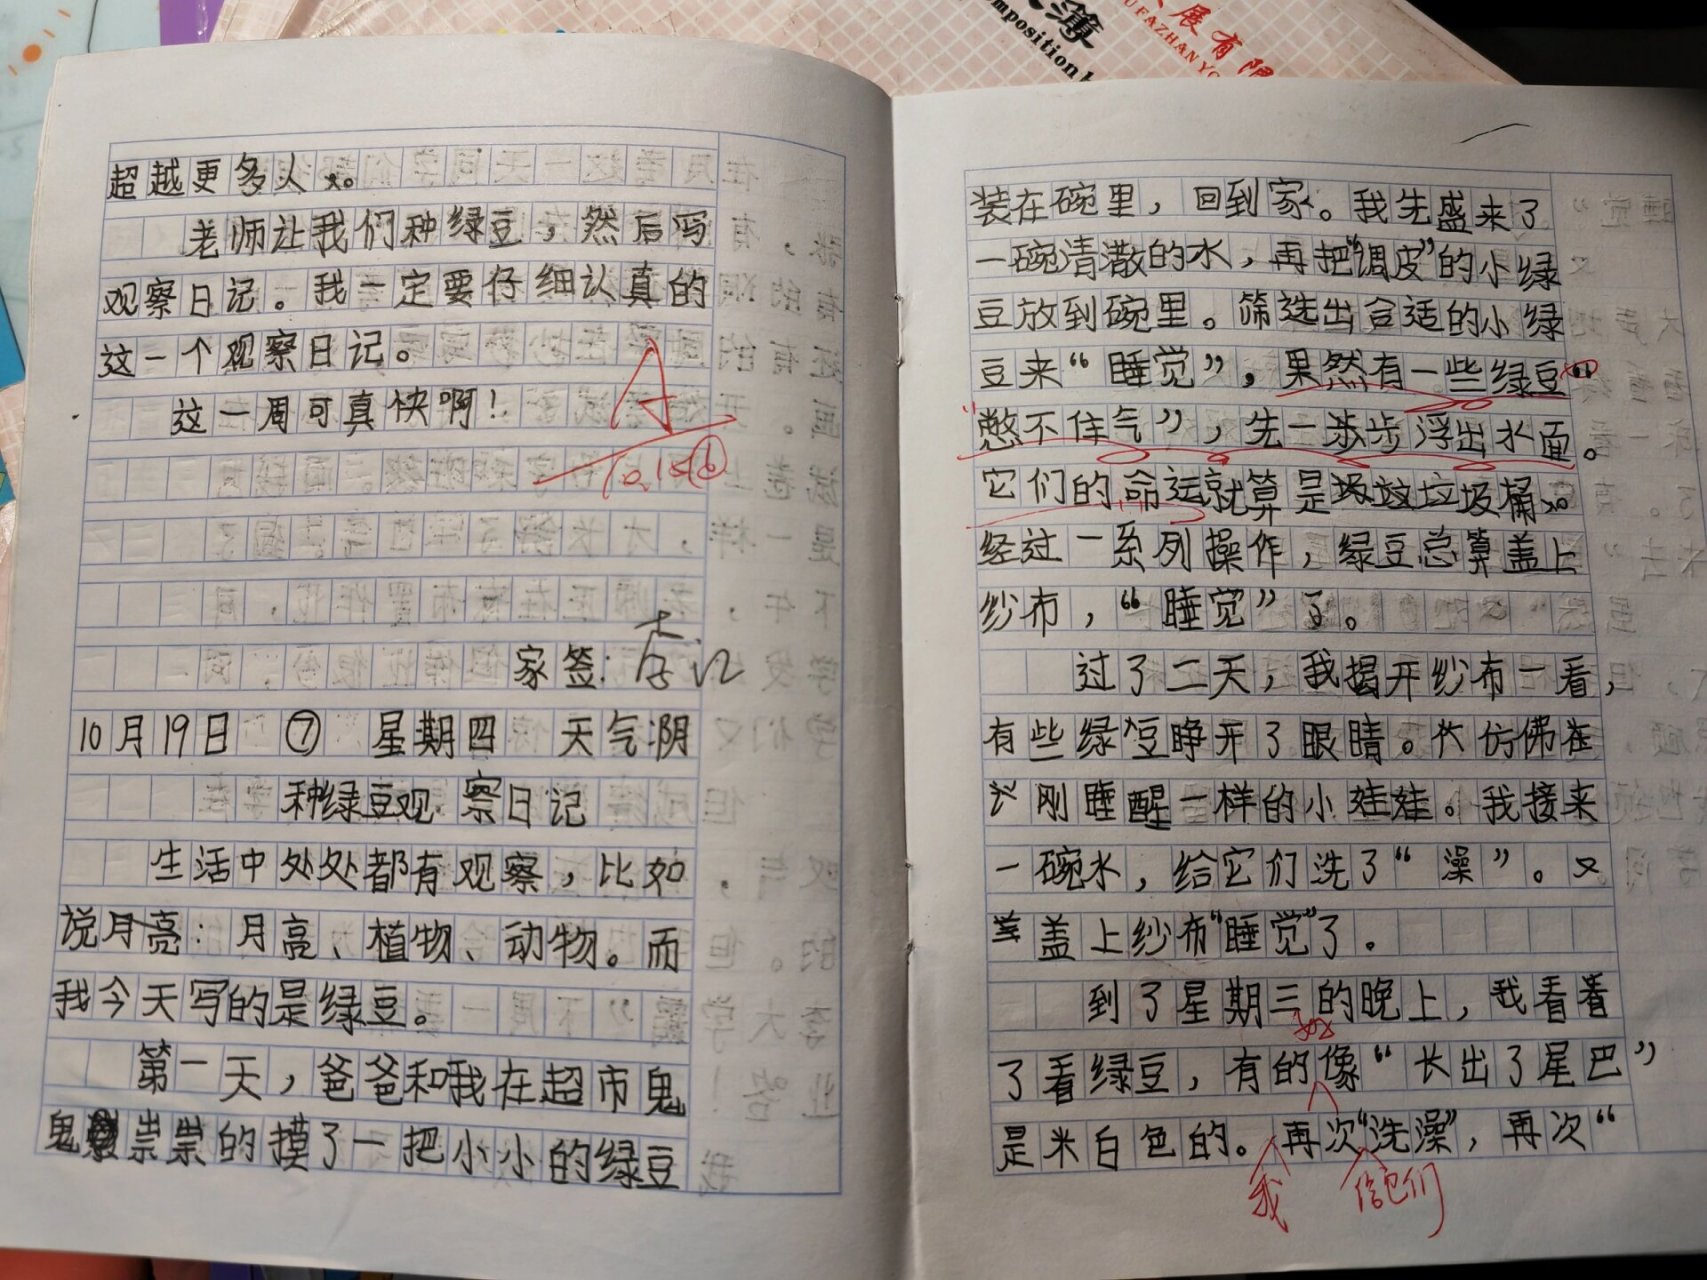 簿
展有限
mposition
UFAZHANYO
超越更多人。
老师让我们种绿豆，然后写
观察日记。我一定要仔细认真的
这一个观察日记。
这一周可真快啊！
A
10.15
家签：
10月19日 ⑦ 星期四 天气：阴
种绿豆观察日记
生活中处处都有观察，比如
说月亮：月亮、植物、动物。而
我今天写的是绿豆。
第一天，爸爸和我在超市鬼
鬼祟祟的摸了一把小小的绿豆
装在碗里，回到家。我先盛来了
一碗清澈的水，再把“调皮”的小绿
豆放到碗里。筛选出合适的小绿
豆来“睡觉”，果然有一些绿豆“
憋不住气”，先一步步浮出水面。
它们的命运就算是垃圾桶。
经过一系列操作，绿豆总算盖上
纱布，“睡觉”了。
过了二天，我揭开纱布一看，
有些绿豆睁开了眼睛。仿佛在
刚睡醒一样的小娃娃。我接来
一碗水，给它们洗了“澡”。又
盖上纱布“睡觉”了。
到了星期三的晚上，我看着
好
了看绿豆，有的像“长出了尾巴”
是米白色的。再次“洗澡”，再次“
我 给它们